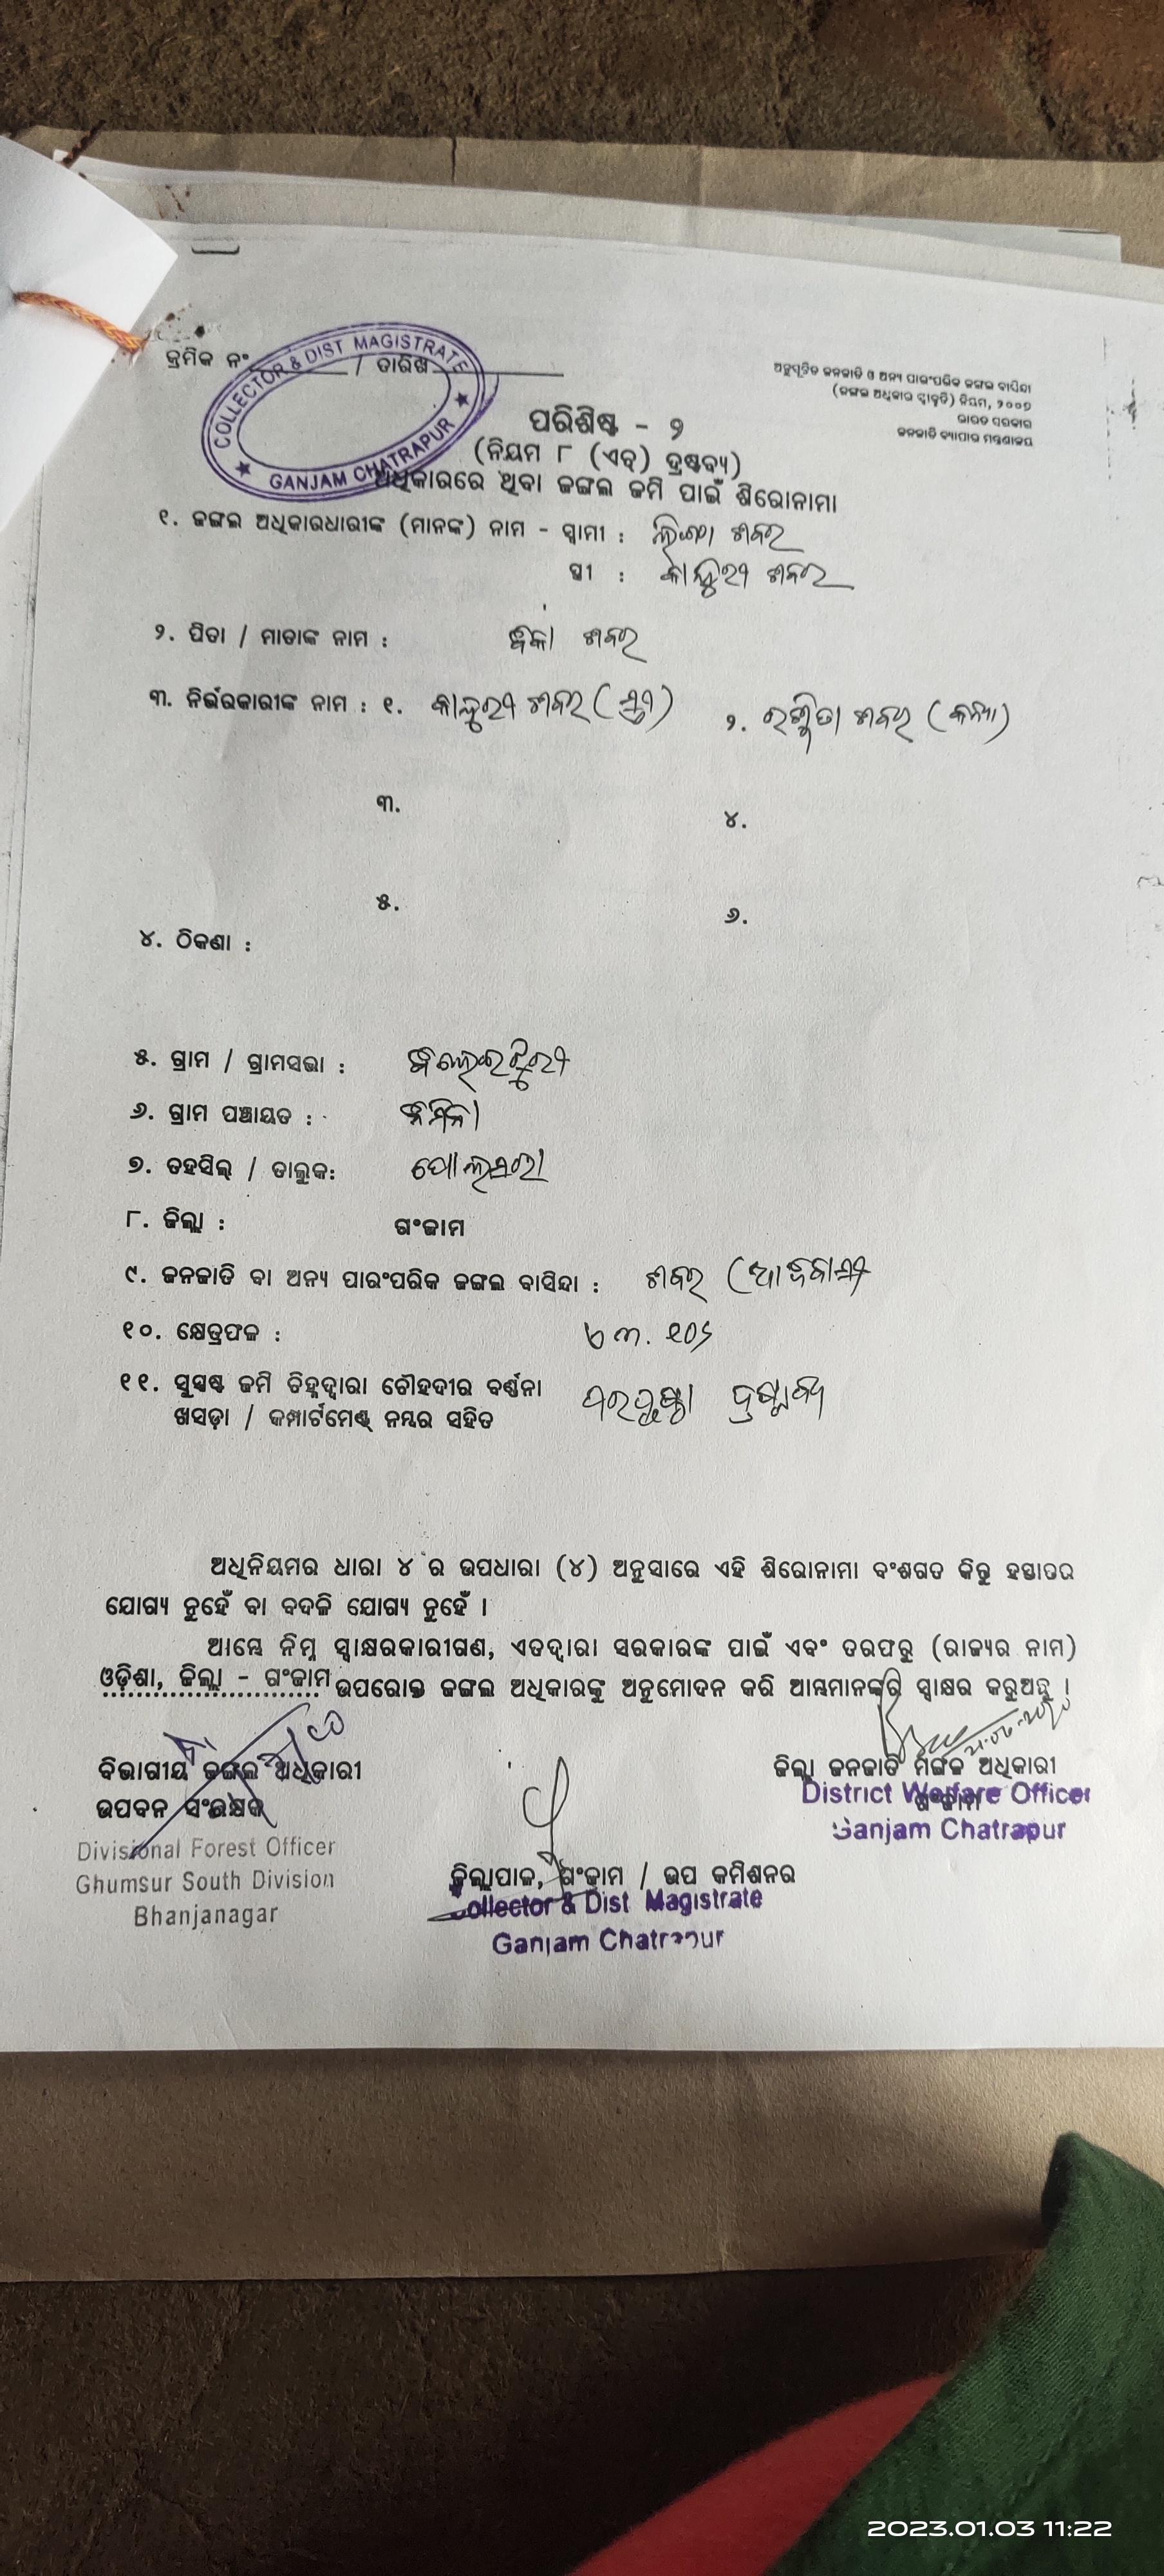 କ୍ରମିକ ନଂ / ତାରିଖ
COLLECTOR & DIST MAGISTRATE
GANJAM CHATRAPUR
ଅନୁସୂଚିତ ଜନଜାତି ଓ ଅନ୍ୟ ପାରଂପରିକ ଜଙ୍ଗଲ ବାସିନ୍ଦା
(ଜଙ୍ଗଲ ଅଧିକାର ସ୍ୱୀକୃତି) ନିୟମ, ୨୦୦୭
ଭାରତ ସରକାର
ଜନଜାତି ବ୍ୟାପାର ମନ୍ତ୍ରଣାଳୟ
ପରିଶିଷ୍ଟ - ୨
(ନିୟମ ୮ (ଏଚ୍) ଦ୍ରଷ୍ଟବ୍ୟ)
ଅଧିକାରରେ ଥିବା ଜଙ୍ଗଲ ଜମି ପାଇଁ ଶିରୋନାମା
୧. ଜଙ୍ଗଲ ଅଧିକାରଧାରୀଙ୍କ (ମାନଙ୍କ) ନାମ - ସ୍ୱାମୀ : ଶବର
ସ୍ତ୍ରୀ : ଶବର
୨. ପିତା / ମାତାଙ୍କ ନାମ : ଶବର
୩. ନିର୍ଭରକାରୀଙ୍କ ନାମ : ୧. ଶବର (ସ୍ତ୍ରୀ) ୨. ଶବର (କନ୍ୟା)
୩. ୪.
୫. ୬.
୪. ଠିକଣା :
୫. ଗ୍ରାମ / ଗ୍ରାମସଭା :
୬. ଗ୍ରାମ ପଞ୍ଚାୟତ :
୭. ତହସିଲ୍ / ତାଲୁକ: ପୋଲସରା
୮. ଜିଲ୍ଲା : ଗଂଜାମ
୯. ଜନଜାତି ବା ଅନ୍ୟ ପାରଂପରିକ ଜଙ୍ଗଲ ବାସିନ୍ଦା : ଶବର (ଆଦିବାସୀ
୧୦. କ୍ଷେତ୍ରଫଳ :
୧୧. ସୁସ୍ପଷ୍ଟ ଜମି ଚିହ୍ନଦ୍ୱାରା ଚୌହଦୀର ବର୍ଣ୍ଣନା
ଖସଡ଼ା / କମ୍ପାର୍ଟମେଣ୍ଟ୍ ନମ୍ବର ସହିତ ପରପୃଷ୍ଠା ଦ୍ରଷ୍ଟବ୍ୟ
ଅଧିନିୟମର ଧାରା ୪ ର ଉପଧାରା (୪) ଅନୁସାରେ ଏହି ଶିରୋନାମା ବଂଶଗତ କିନ୍ତୁ ହସ୍ତାନ୍ତର
ଯୋଗ୍ୟ ନୁହେଁ ବା ବଦଳି ଯୋଗ୍ୟ ନୁହେଁ ।
ଆମ୍ଭେ ନିମ୍ନ ସ୍ୱାକ୍ଷରକାରୀଗଣ, ଏତଦ୍ୱାରା ସରକାରଙ୍କ ପାଇଁ ଏବଂ ତରଫରୁ (ରାଜ୍ୟର ନାମ)
ଓଡ଼ିଶା, ଜିଲ୍ଲା - ଗଂଜାମ ଉପରୋକ୍ତ ଜଙ୍ଗଲ ଅଧିକାରଙ୍କୁ ଅନୁମୋଦନ କରି ଆମ୍ଭମାନଙ୍କରି ସ୍ୱାକ୍ଷର କରୁଅଛୁ ।
ବିଭାଗୀୟ ଜଙ୍ଗଲ ଅଧିକାରୀ
ଉପବନ ସଂରକ୍ଷକ
Divisional Forest Officer
Ghumsur South Division
Bhanjanagar
ଜିଲ୍ଲାପାଳ, ଗଂଜାମ / ଉପ କମିଶନର
Collector & Dist Magistrate
Ganjam Chatrapur
ଜିଲ୍ଲା ଜନଜାତି ମଙ୍ଗଳ ଅଧିକାରୀ
ଗଂଜାମ
District Welfare Officer
Ganjam Chatrapur
2023.01.03 11:22